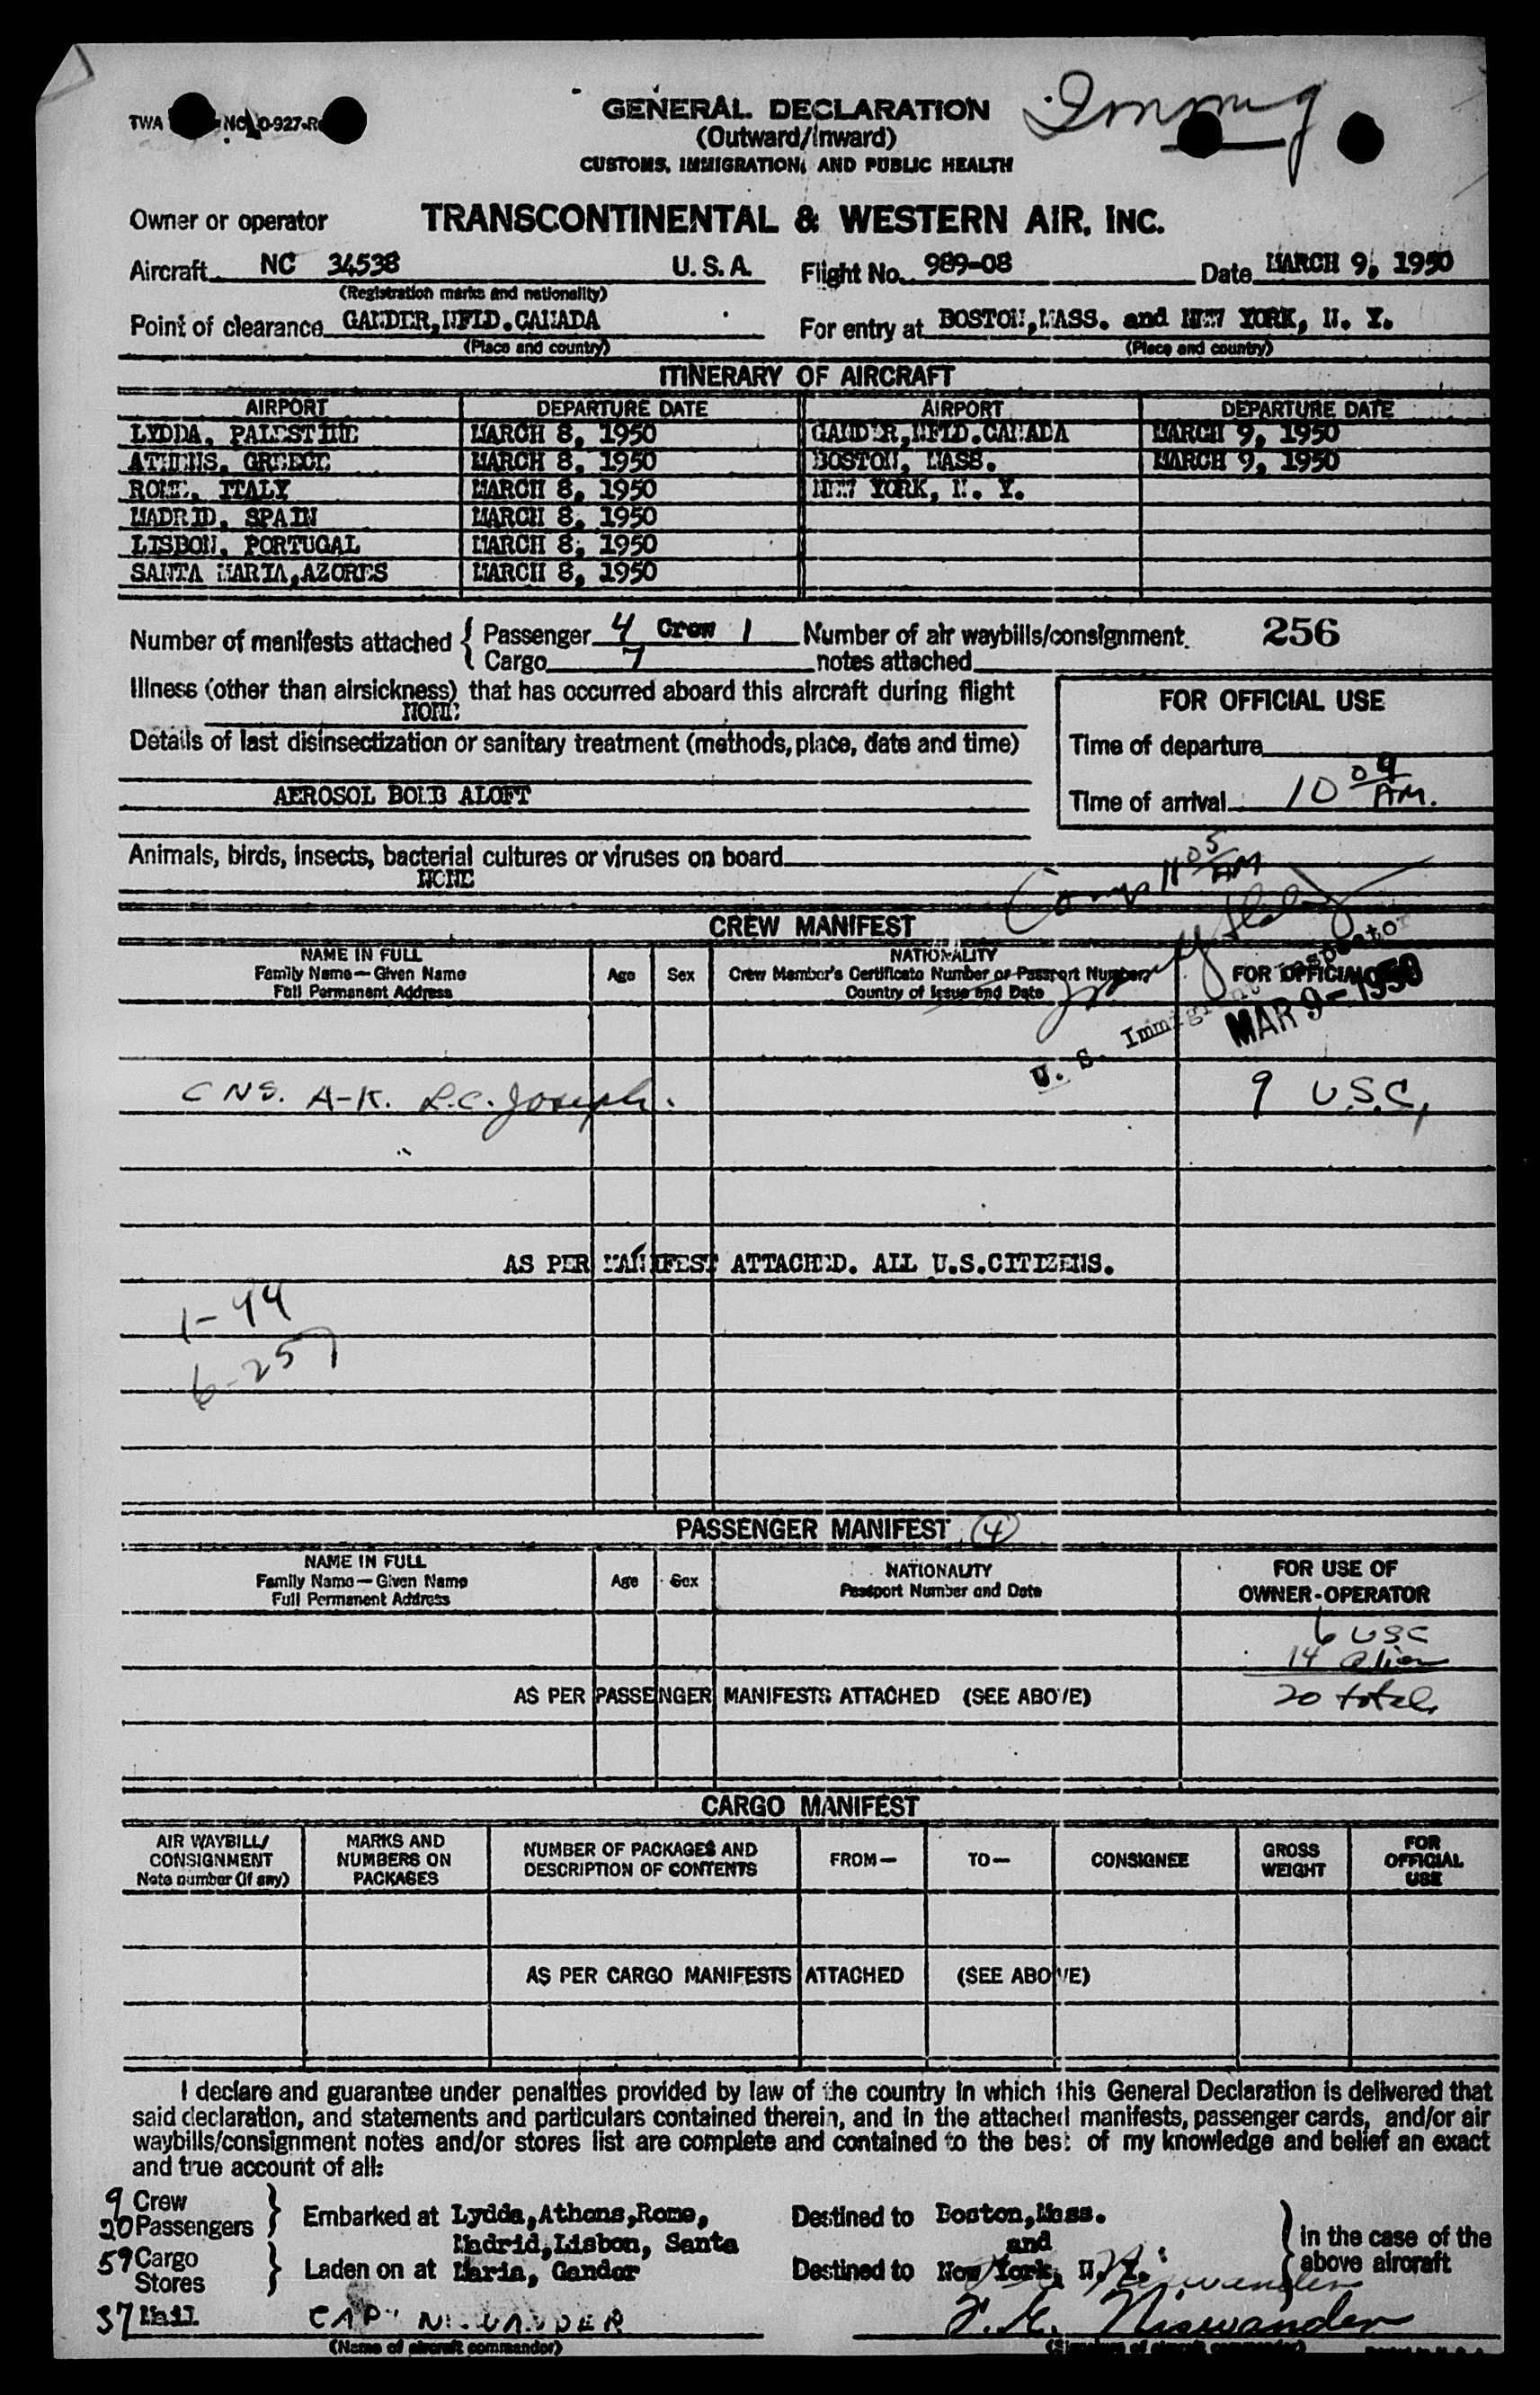 TWA NC 0-927-R
GENERAL DECLARATION
(Outward/Inward)
CUSTOMS, IMMIGRATION, AND PUBLIC HEALTH
Immig
Owner or operator TRANSCONTINENTAL & WESTERN AIR, INC.
Aircraft NC 34538 U.S.A. Flight No. 989-08 Date MARCH 9, 1950
(Registration marks and nationality)
Point of clearance GANDER, NFLD. CANADA For entry at BOSTON, MASS. and NEW YORK, N. Y.
(Place and country) (Place and country)
ITINERARY OF AIRCRAFT
AIRPORT DEPARTURE DATE AIRPORT DEPARTURE DATE
LYDDA, PALESTINE MARCH 8, 1950 GANDER, NFLD. CANADA MARCH 9, 1950
ATHENS, GREECE MARCH 8, 1950 BOSTON, MASS. MARCH 9, 1950
ROME, ITALY MARCH 8, 1950 NEW YORK, N. Y.
MADRID, SPAIN MARCH 8, 1950
LISBON, PORTUGAL MARCH 8, 1950
SANTA MARIA, AZORES MARCH 8, 1950
Number of manifests attached { Passenger 4 Crew 1 Number of air waybills/consignment 256
Cargo 7 notes attached
Illness (other than airsickness) that has occurred aboard this aircraft during flight
NONE
FOR OFFICIAL USE
Details of last disinsectization or sanitary treatment (methods, place, date and time)
Time of departure
AEROSOL BOMB ALOFT
Time of arrival 10 09 AM.
Animals, birds, insects, bacterial cultures or viruses on board
NONE
Comp 11 05 AM
CREW MANIFEST
NAME IN FULL
Family Name—Given Name
Full Permanent Address
Age Sex
NATIONALITY
Crew Member's Certificate Number or Passport Number
Country of Issue and Date
FOR OFFICIAL
U. S. Immigrant Inspector
MAR 9 - 1950
CNS. A-K. L.C. Joseph. 9 U.S.C,
AS PER MANIFEST ATTACHED. ALL U.S.CITIZENS.
1-44
6-257
PASSENGER MANIFEST (4)
NAME IN FULL
Family Name—Given Name
Full Permanent Address
Age Sex
NATIONALITY
Passport Number and Date
FOR USE OF
OWNER-OPERATOR
6 USC
14 Alien
AS PER PASSENGER MANIFESTS ATTACHED (SEE ABOVE) 20 total
CARGO MANIFEST
AIR WAYBILL/
CONSIGNMENT
Note number (if any)
MARKS AND
NUMBERS ON
PACKAGES
NUMBER OF PACKAGES AND
DESCRIPTION OF CONTENTS
FROM— TO— CONSIGNEE
GROSS
WEIGHT
FOR
OFFICIAL
USE
AS PER CARGO MANIFESTS ATTACHED (SEE ABOVE)
I declare and guarantee under penalties provided by law of the country in which this General Declaration is delivered that
said declaration, and statements and particulars contained therein, and in the attached manifests, passenger cards, and/or air
waybills/consignment notes and/or stores list are complete and contained to the best of my knowledge and belief an exact
and true account of all:
9 Crew
20 Passengers } Embarked at Lydda, Athens, Rome, Destined to Boston, Mass.
Madrid, Lisbon, Santa and
59 Cargo
Stores } Laden on at Maria, Gander Destined to New York, N. Y.
} in the case of the
above aircraft
37 Mail CAPT NISWANDER Niswander
F. E. Niswander
(Name of aircraft commander) (Signature of aircraft commander)